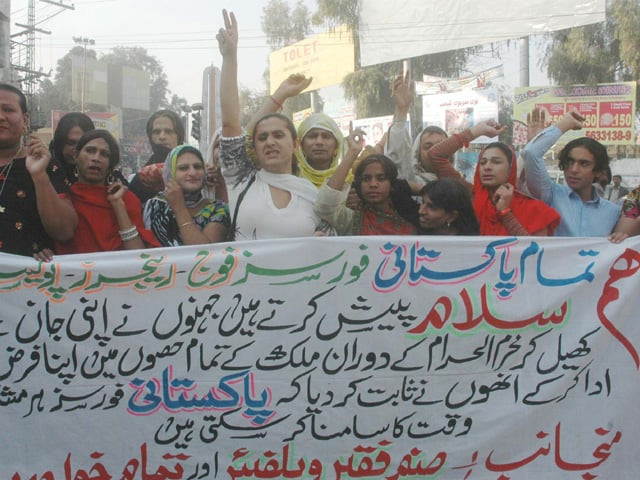 TOLET
5633138-9
ہم تمام پاکستانی فورسز فوج - رینجرز - پولیس
سلام پیش کرتے ہیں جنہوں نے اپنی جان
کھیل کر محرم الحرام کے دوران ملک کے تمام حصوں میں اپنا فرض
ادا کر کے انھوں نے ثابت کر دیا کہ پاکستانی فورسز ہر
وقت کا سامنا کر سکتی ہیں
منجانب: صنم فقیر ویلفیئر اور تمام